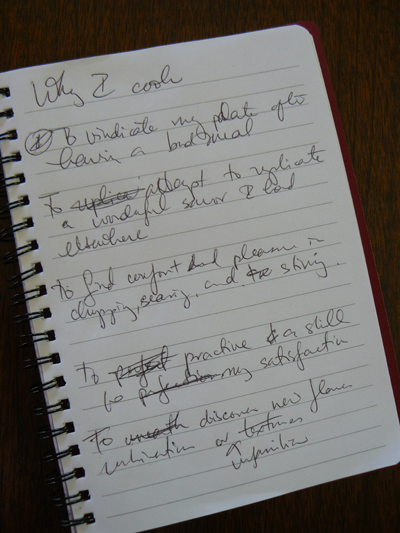 Why I cook
① To vindicate my palate after
having a bad meal
To replica attempt to replicate
a wonderful savor I had
elsewhere
To find comfort and pleasure in
chopping, searing, and stirring.
To perfect practice a skill
to perfection my satisfaction
To unearth discover new flavor
combinations or textures
unfamiliar